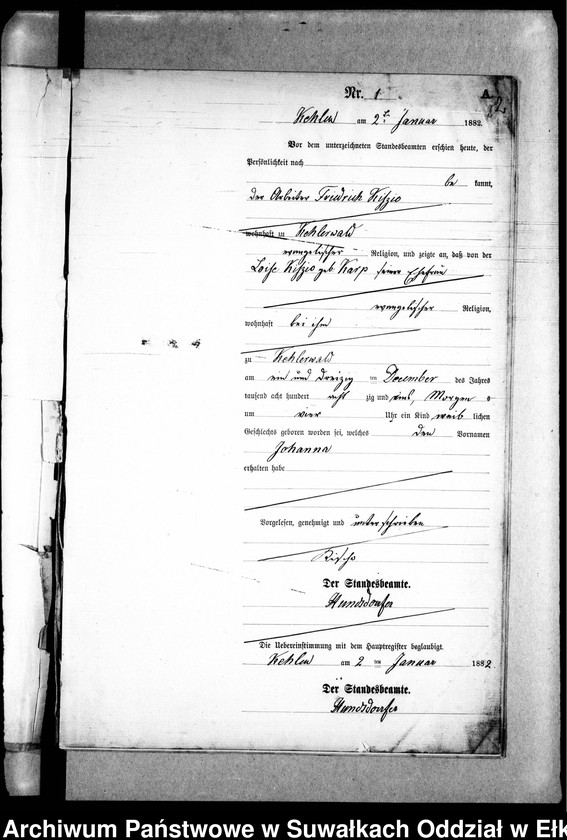 Nr. 1 A.
2.
Kehlen am 2ten Januar 1882.
Vor dem unterzeichneten Standesbeamten erschien heute, der
Persönlichkeit nach
be kannt,
der Arbeiter Friedrich
wohnhaft zu Kehlerwald
evangelischer Religion, und zeigte an, daß von der
geb. Karp seiner Ehefrau
evangelischer Religion,
wohnhaft bei ihm
zu Kehlerwald
am ein und dreizig ten December des Jahres
tausend acht hundert acht zig und eins, Morgens
um vier Uhr ein Kind weib lichen
Geschlechts geboren worden sei, welches den Vornamen
Johanna
erhalten habe
Vorgelesen, genehmigt und unterschrieben
Der Standesbeamte.
Hundsdoerfer
Die Uebereinstimmung mit dem Hauptregister beglaubigt.
Kehlen am 2 ten Januar 1882.
Der Standesbeamte.
Hundsdoerfer
Archiwum Państwowe w Suwałkach Oddział w Ełk